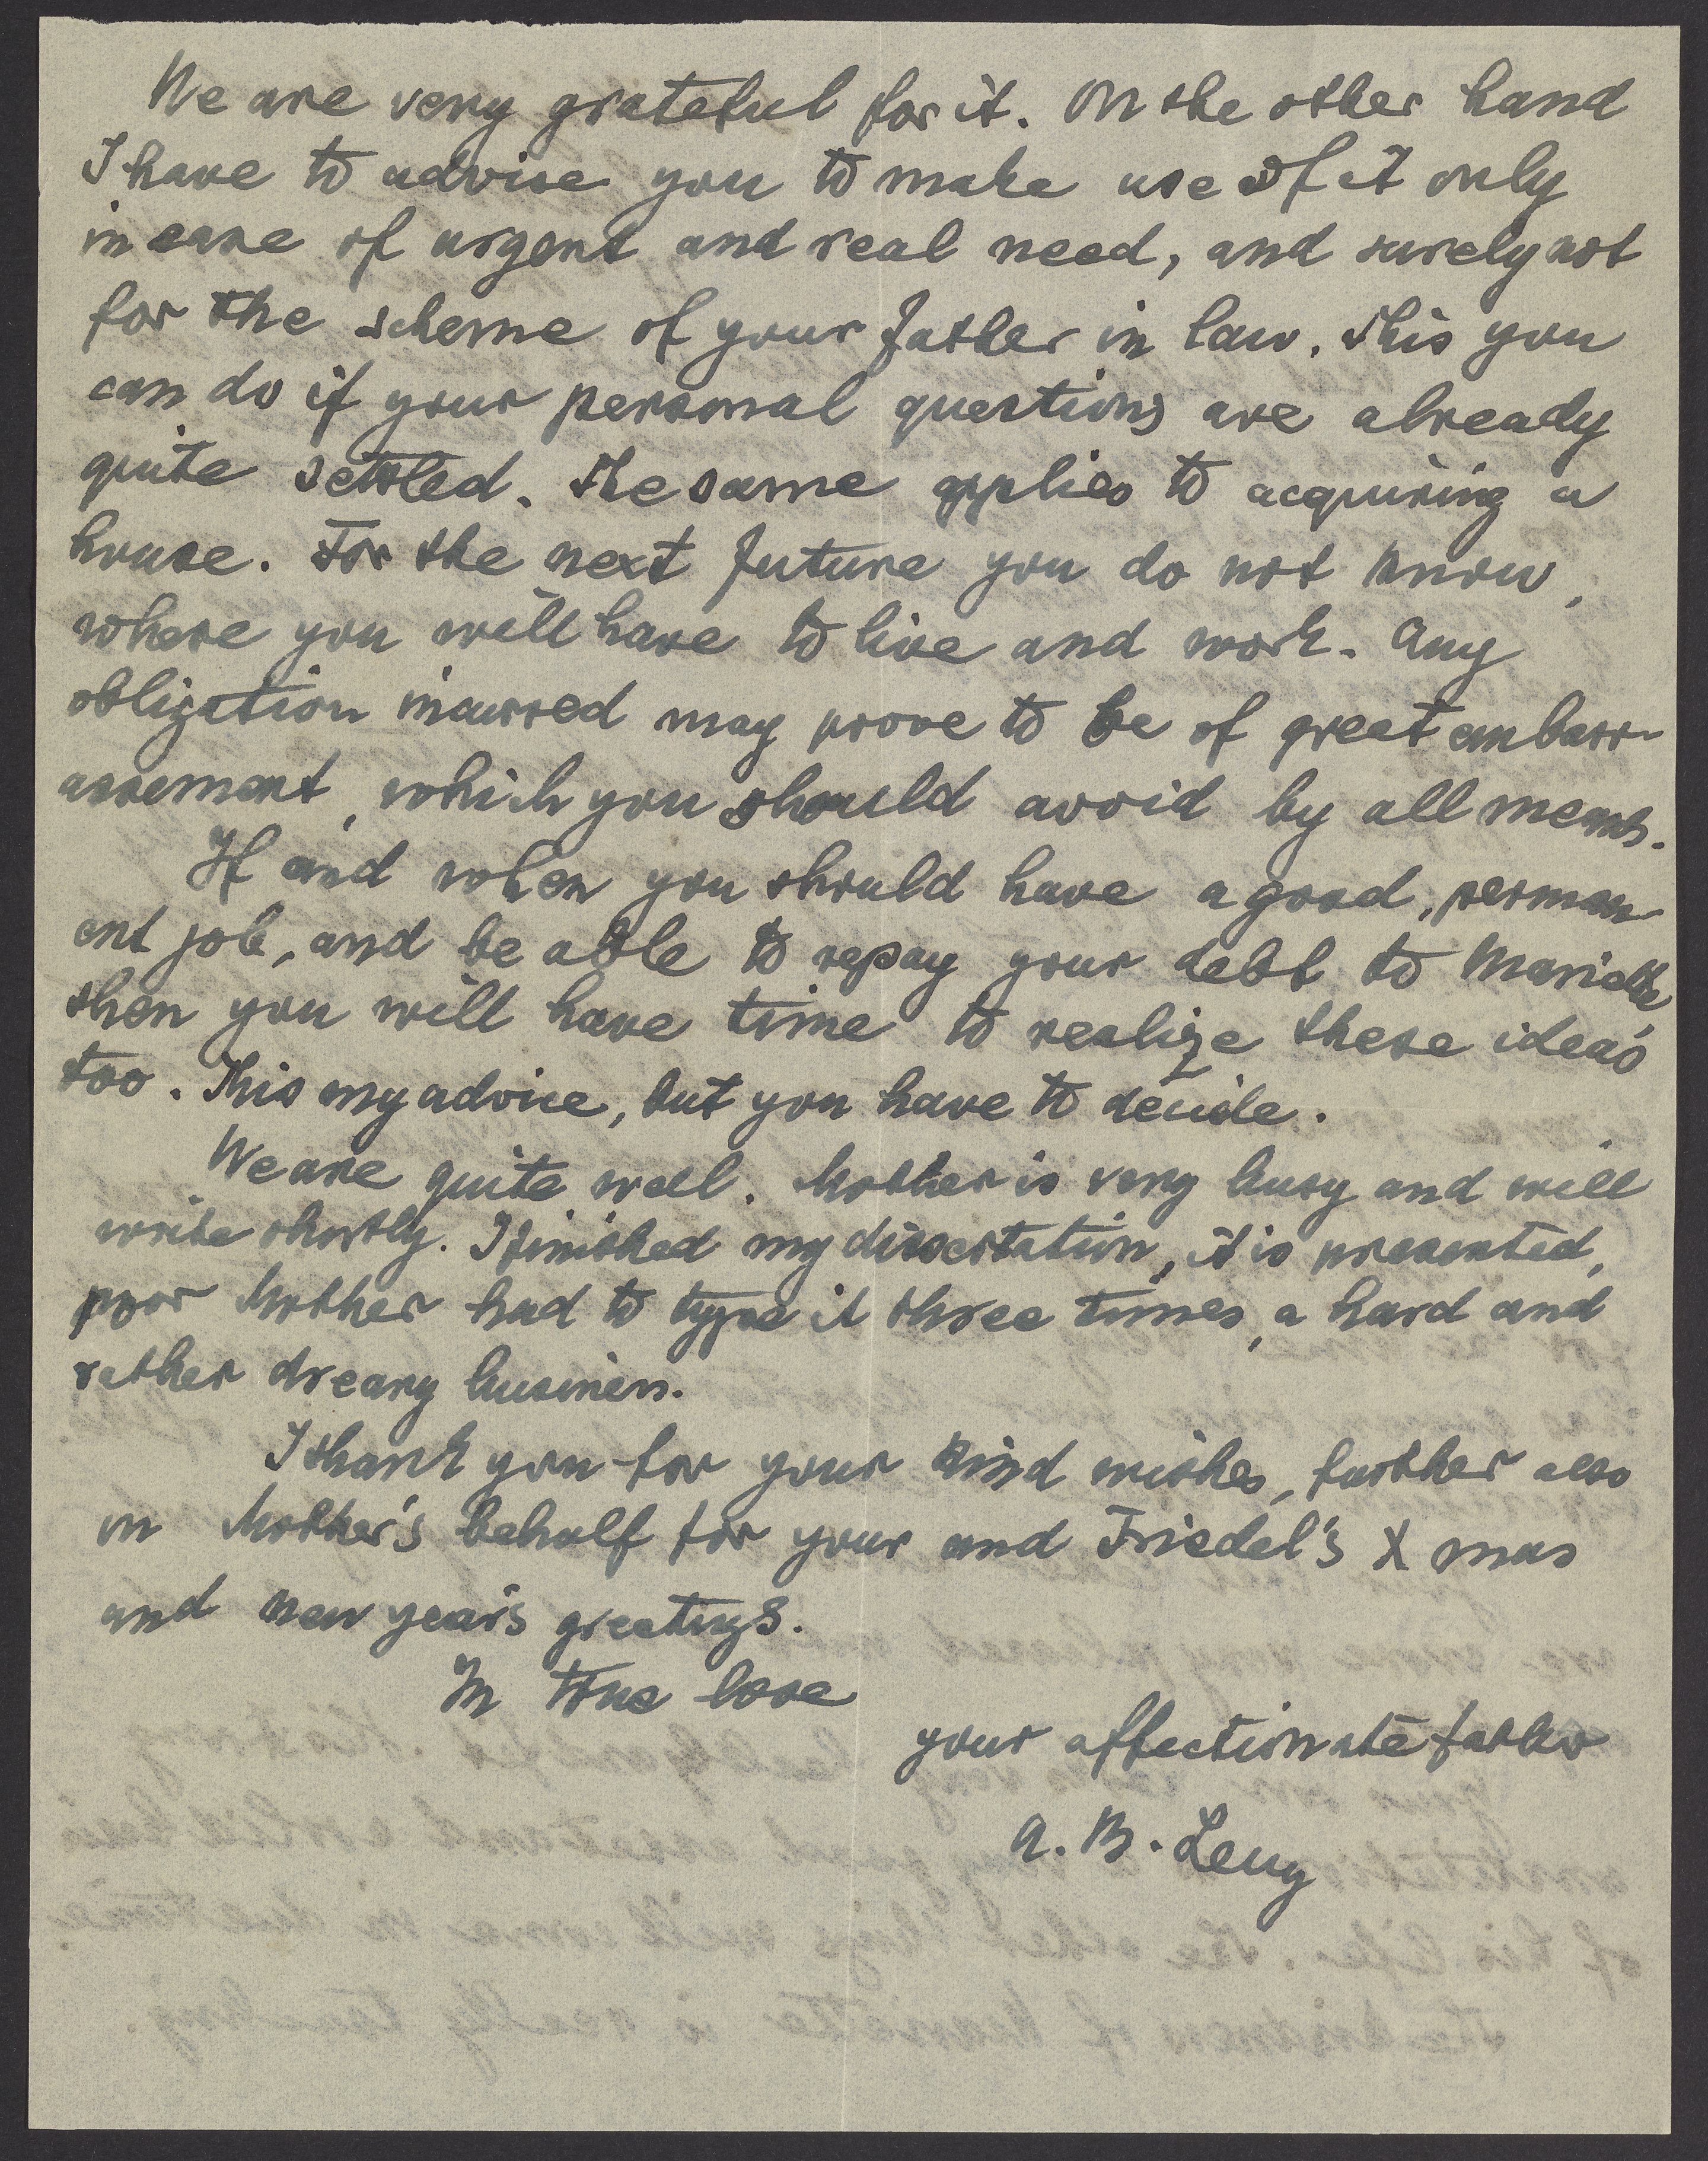 We are very grateful for it. On the other hand
I have to advise you to make use of it only
in case of urgent and real need, and surely not
for the scheme of your father in law. This you
can do if your personal questions are already
quite settled. The same applies to acquiring a
house. For the next future you do not know,
where you will have to live and work. Any
obligation incurred may prove to be of great embarr-
assement, which you should avoid by all means.
If and when you should have a good, perman-
ent job, and be able to repay your debt to Mariette
then you will have time to realize these idea's
too. This my advice, but you have to decide.
We are quite well. Mother is very busy and will
write shortly. I finished my dissertation, it is presented,
poor Mother had to type it three times, a hard and
rather dreary business.
I thank you for your kind wishes, further also
in Mother's behalf for your and Friedel's X mas
and new year's greetings.
In true love
your affectionate father
A. B. Levy